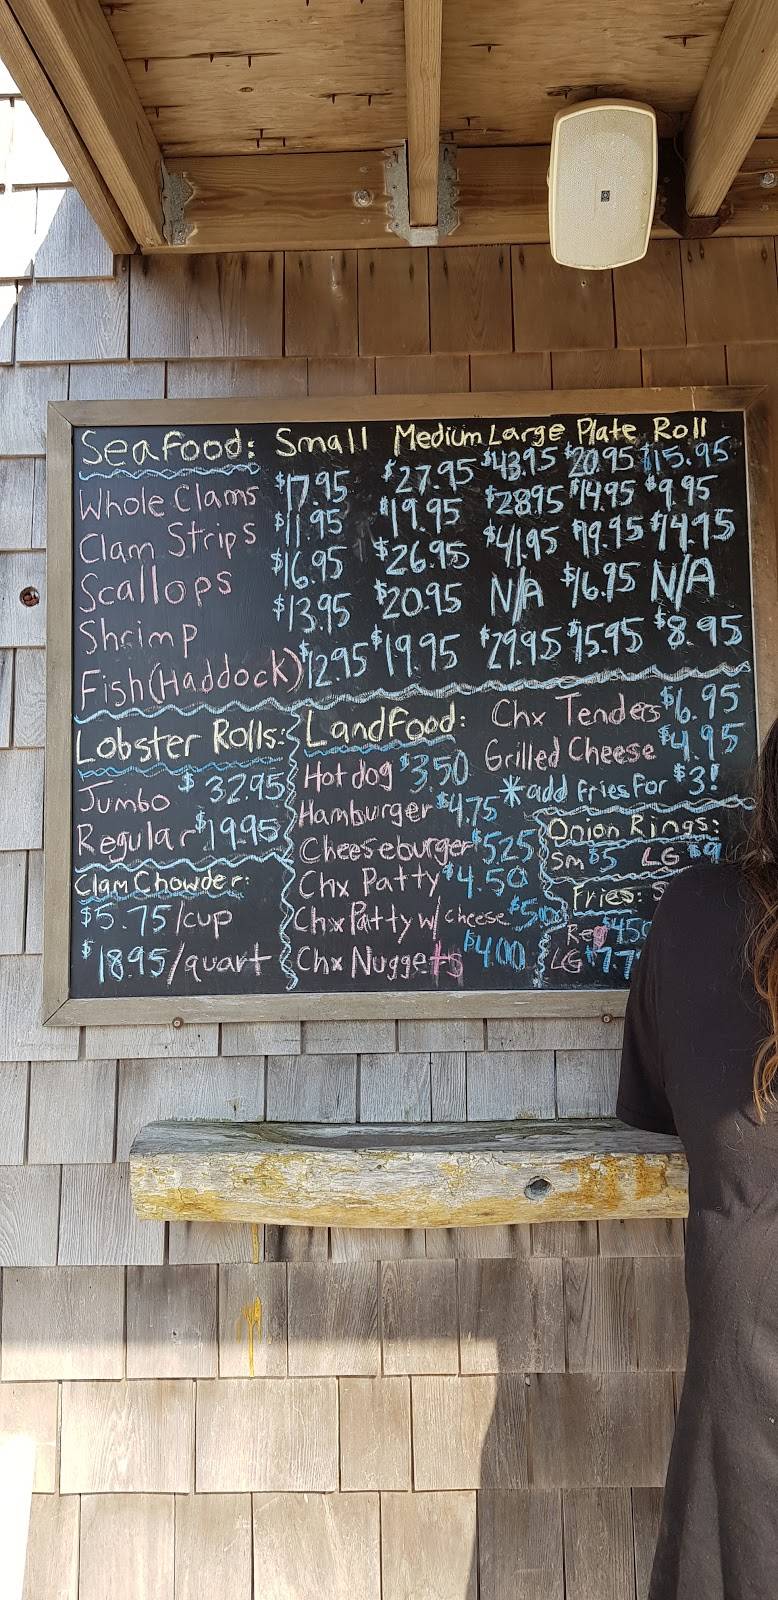 Seafood: Small Medium Large Plate Roll
Whole Clams $17.95 $27.95 $43.95 $20.95 $15.95
Clam Strips $11.95 $19.95 $28.95 $14.95 $9.95
Scallops $16.95 $26.95 $41.95 $19.95 $14.95
Shrimp $13.95 $20.95 N/A $16.95 N/A
Fish (Haddock) $12.95 $19.95 $29.95 $15.95 $8.95
Lobster Rolls:
Jumbo $32.95
Regular $19.95
Clam Chowder:
$5.75/cup
$18.95/quart
LandFood:
Hotdog $3.50
Hamburger $4.75
Cheeseburger $5.25
Chx Patty $4.50
Chx Patty w/ cheese $5.00
Chx Nuggets $4.00
Chx Tenders $6.95
Grilled Cheese $4.95
*add fries for $3!
Onion Rings:
Sm $5 LG $9
Fries:
Reg $4.50
LG